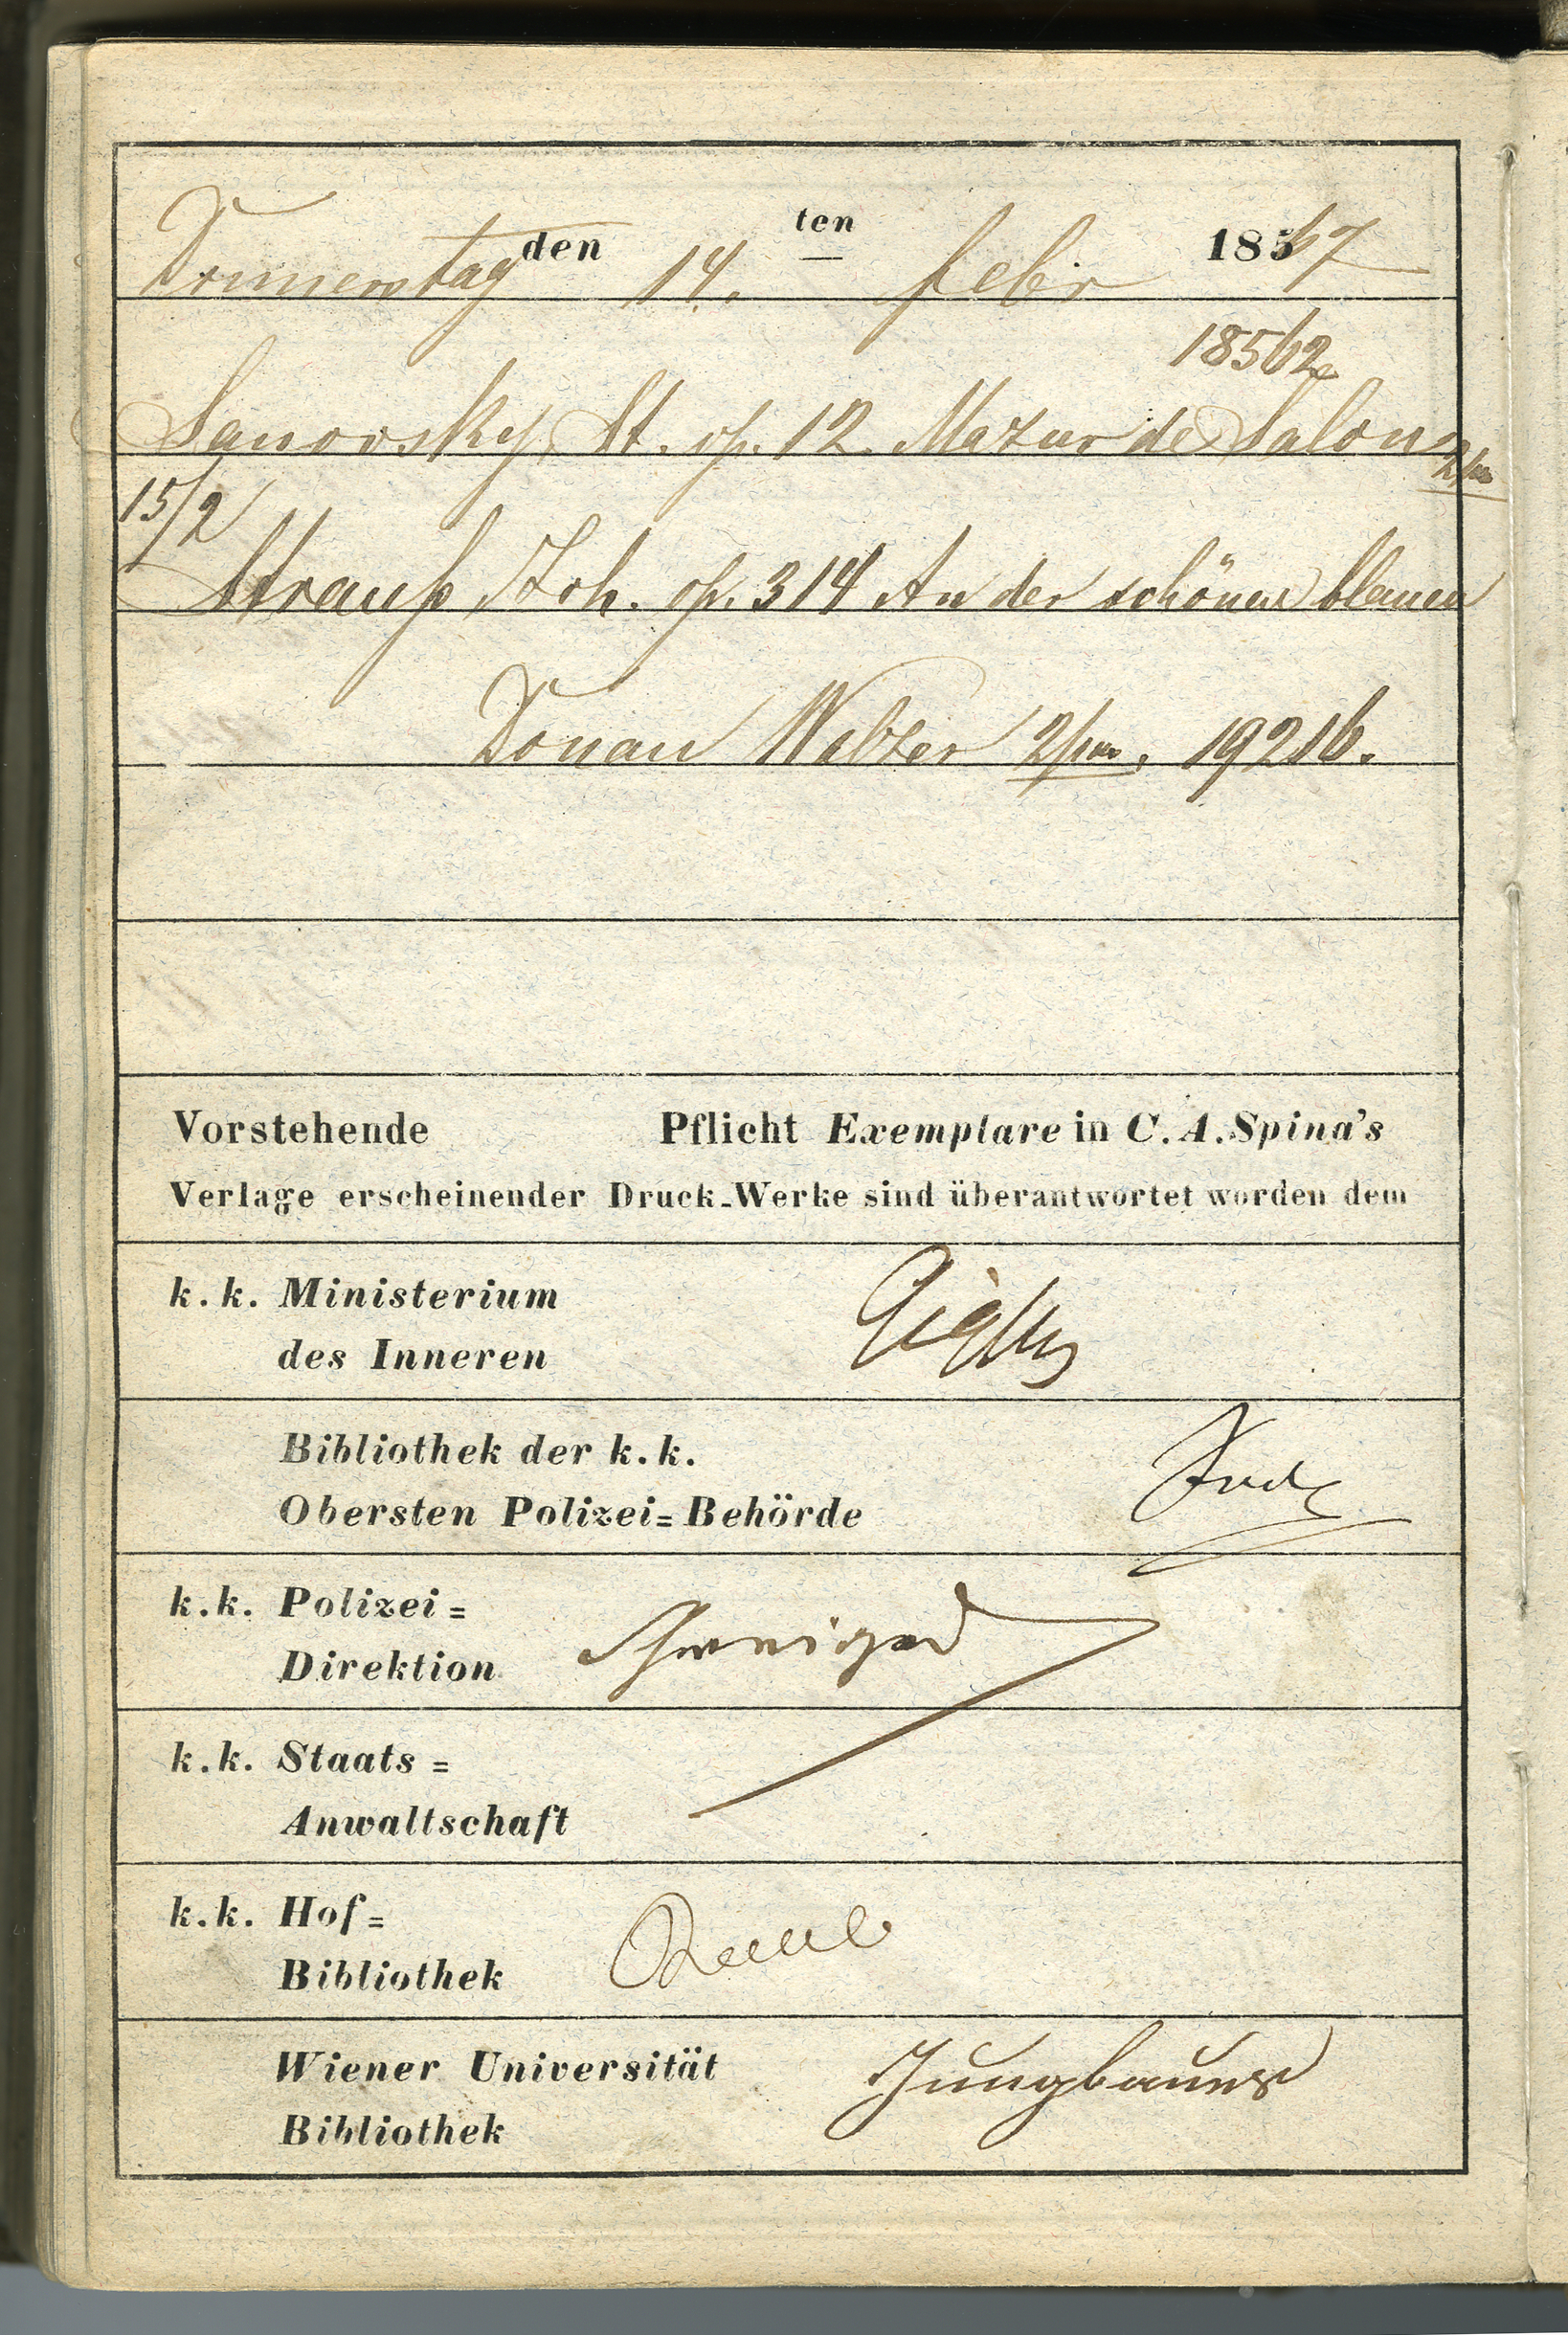 Donnerstag den 14. ten Febr 1867
18562
Sanovsky St. op. 12. Mazur de Salon 2/ms
15/2
Strauß Joh. op. 314 An der schönen blauen
Donau Walzer 2/ms. 19216.
Vorstehende Pflicht Exemplare in C. A. Spina's
Verlage erscheinender Druck-Werke sind überantwortet worden dem
k. k. Ministerium
des Inneren
Bibliothek der k. k.
Obersten Polizei=Behörde
k. k. Polizei=
Direktion
k. k. Staats=
Anwaltschaft
k. k. Hof=
Bibliothek
Wiener Universität
Jungbauer
Bibliothek